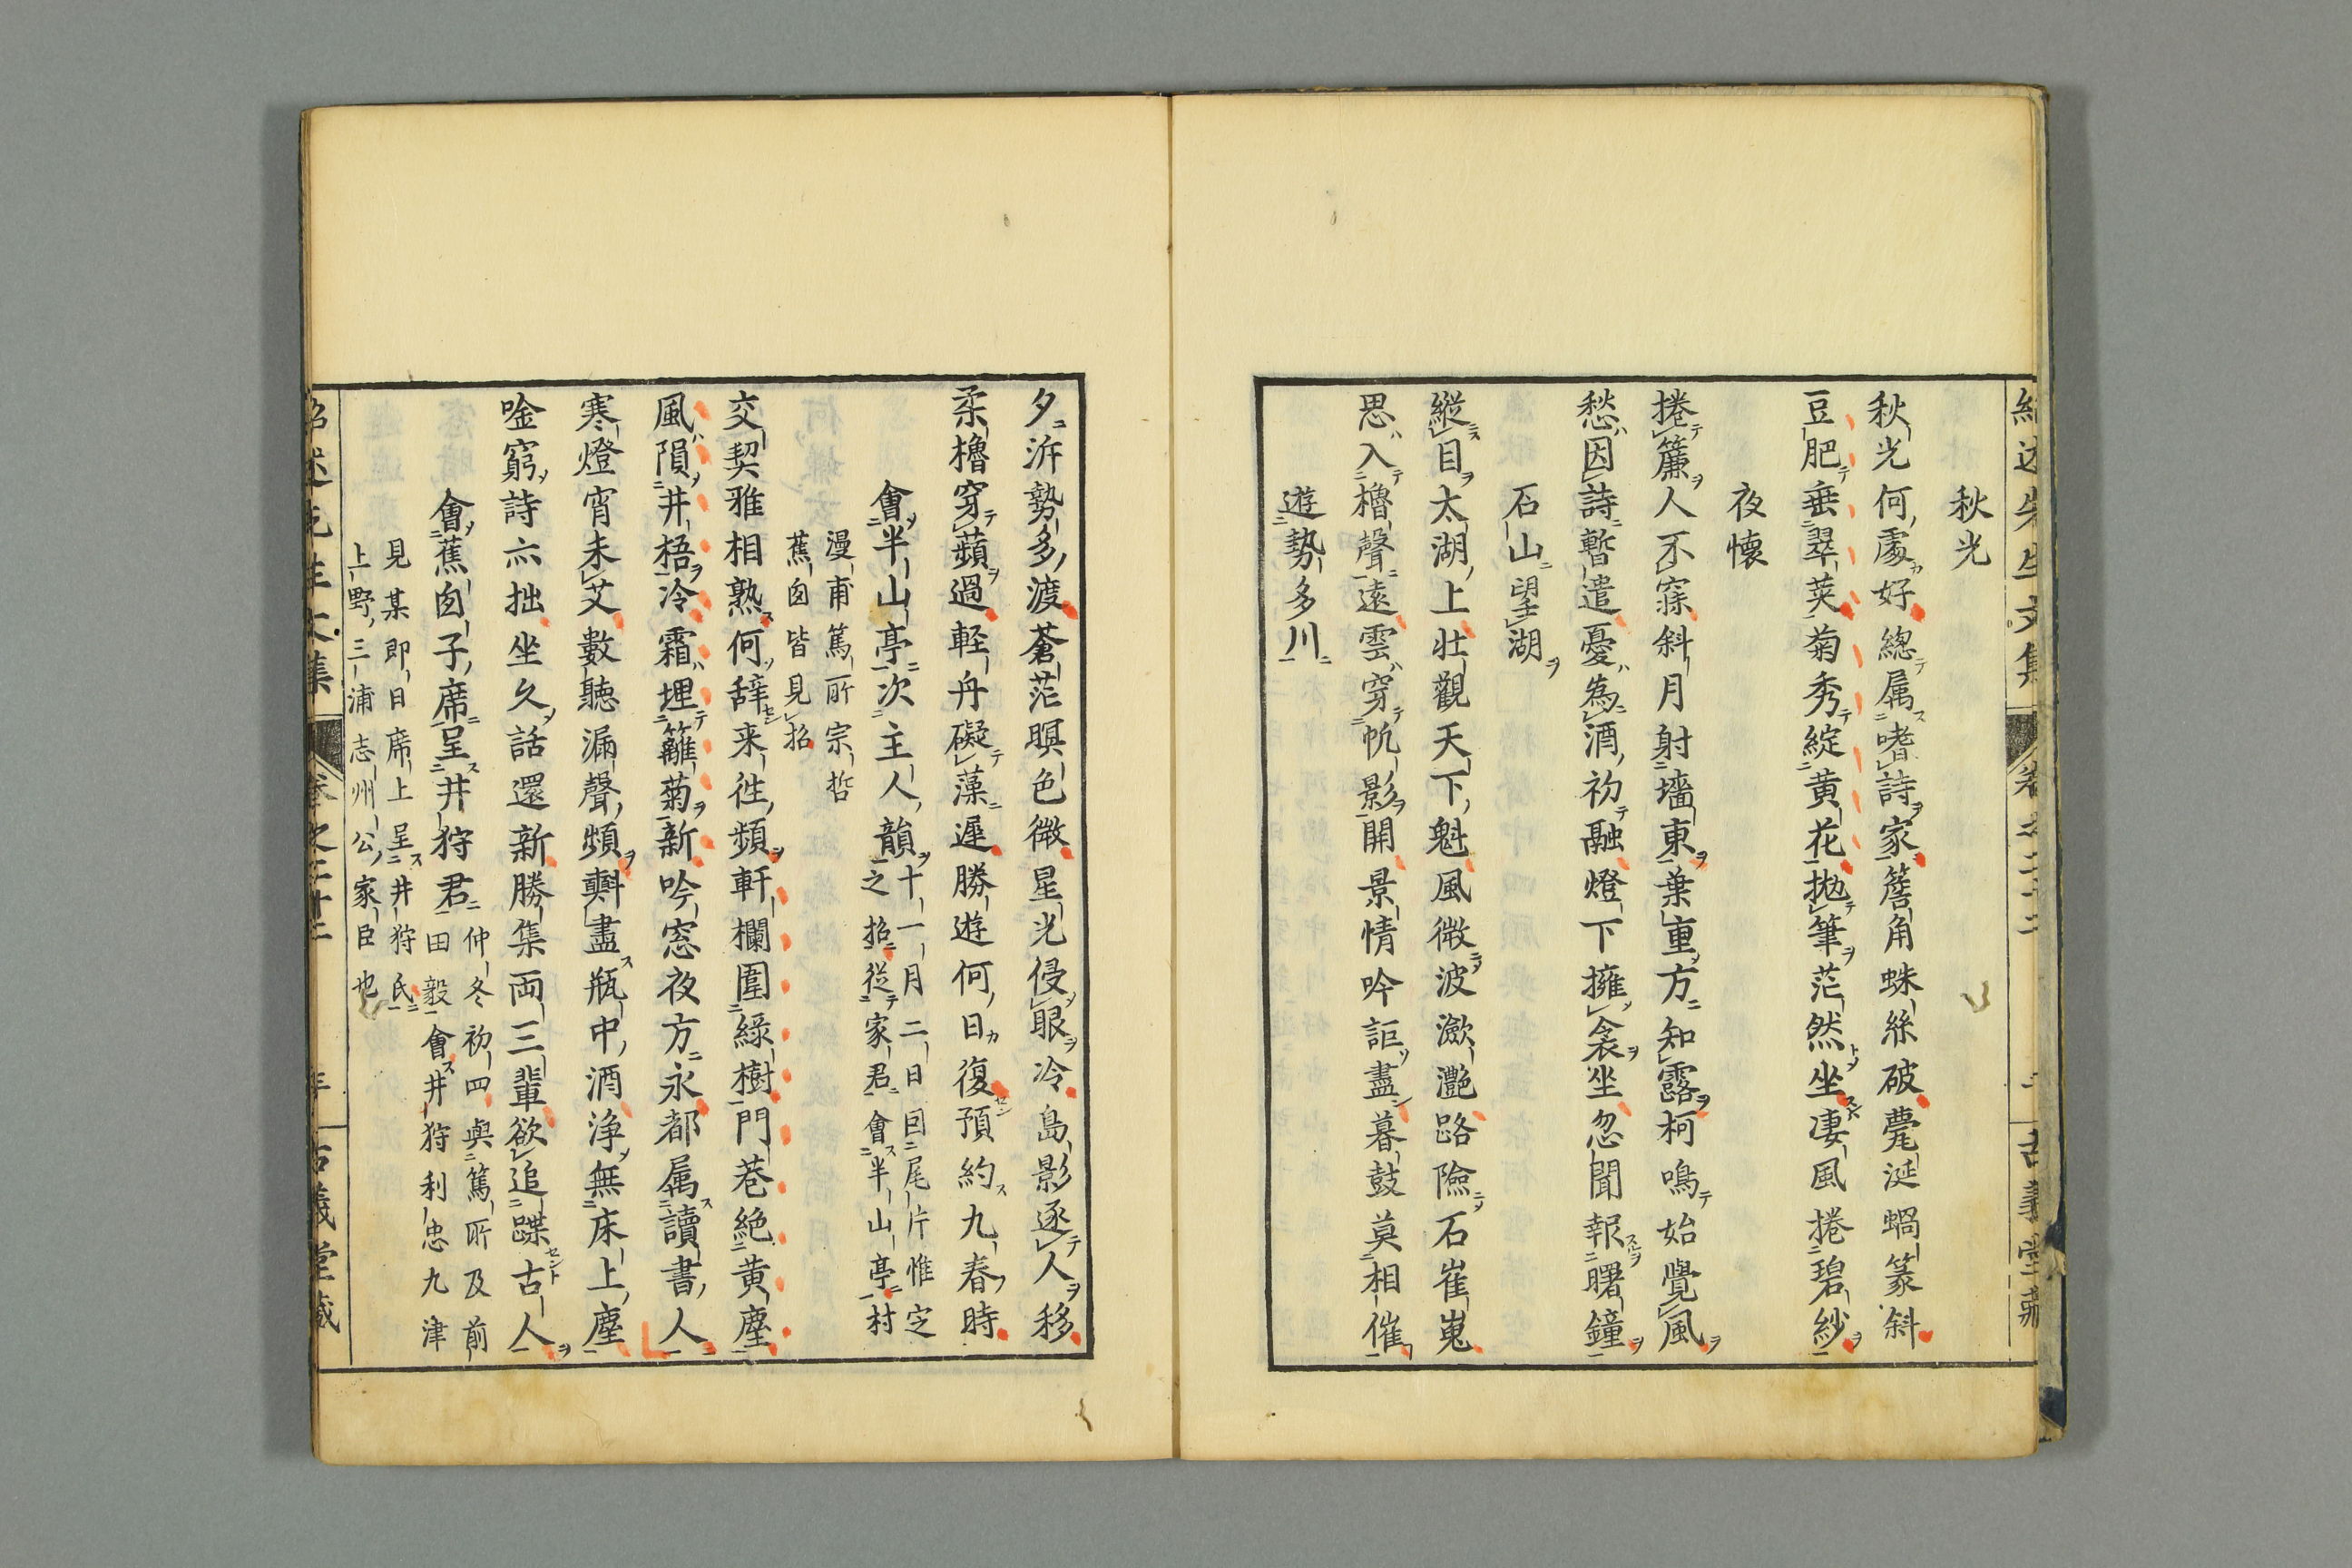 秋光
秋光何處好總属嗜詩家簷角蛛絲破甃涎蝸篆斜
豆肥垂翠莢菊秀綻黄花拋筆茫然坐凄風捲碧紗
夜懷
捲簾人不寐斜月射墻東葉重方知露柯鳴始覺風
愁因詩暫遣憂為酒初融燈下擁衾坐忽聞報曙鐘
石山望湖
縱目太湖上壯觀天下魁風微波瀲灔路險石崔嵬
思入櫓聲遠雲穿帆影開景情吟詎盡暮鼓莫相催
遊勢多川
夕泝勢多渡蒼茫暝色微星光侵眼冷島影逐人移
柔櫓穿蘋過軽舟礙藻遲勝遊何日復預約九春時
會半山亭次主人韻
十一月二日囙尾片惟定
之招從家君會半山亭村
漫甫篤所宗哲
蕉囪皆見招
交契雅相熟何辞来徃頻軒欄圍綠樹門巷絶黄塵
風隕井梧冷霜埋籬菊新吟窓夜方永都属讀書人
寒燈宵未艾數聽漏聲頻㪺盡瓶中酒浄無床上塵
唫窮詩亦拙坐久話還新勝集両三輩欲追蹀古人
會蕉囪子席呈井狩君
仲冬初四與篤所及前
田毅會井狩利忠九津
見某即日席上呈井狩氏
上野三浦志州公家臣也
卷之三十二
古義堂藏